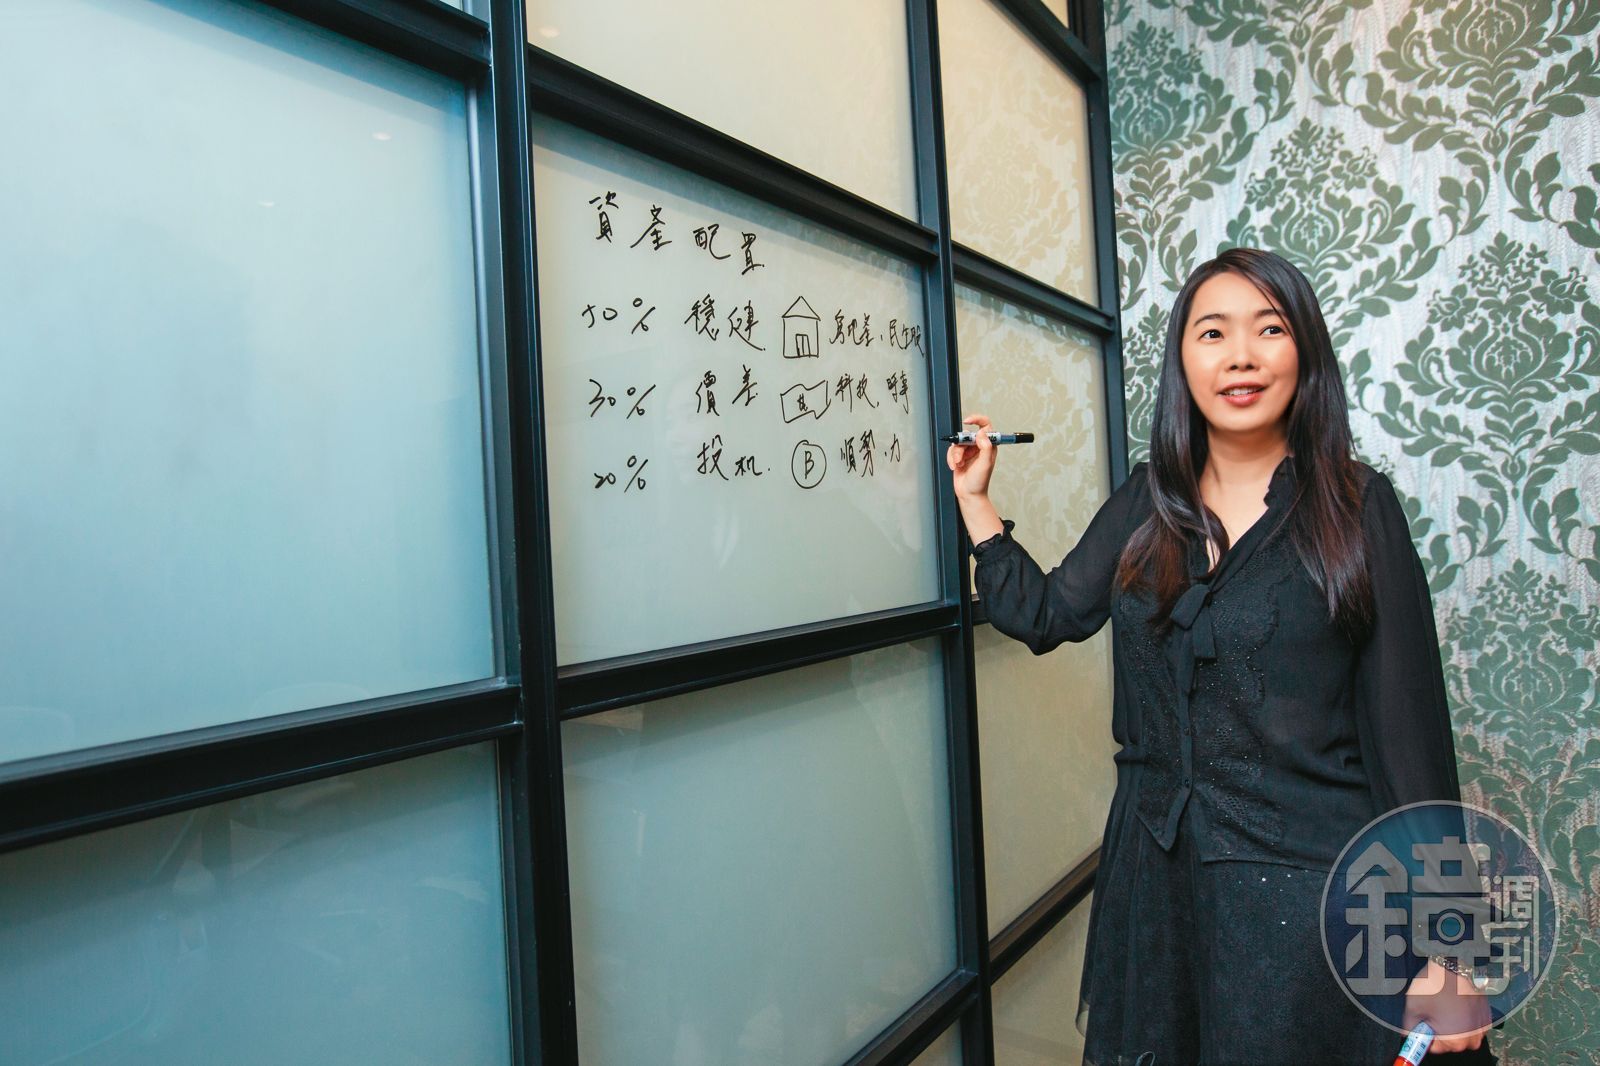 資產配置
50% 穩健 房地產、民生股
30% 價差 科技，時事
20% 投机 B 順勢、力
鏡週刊